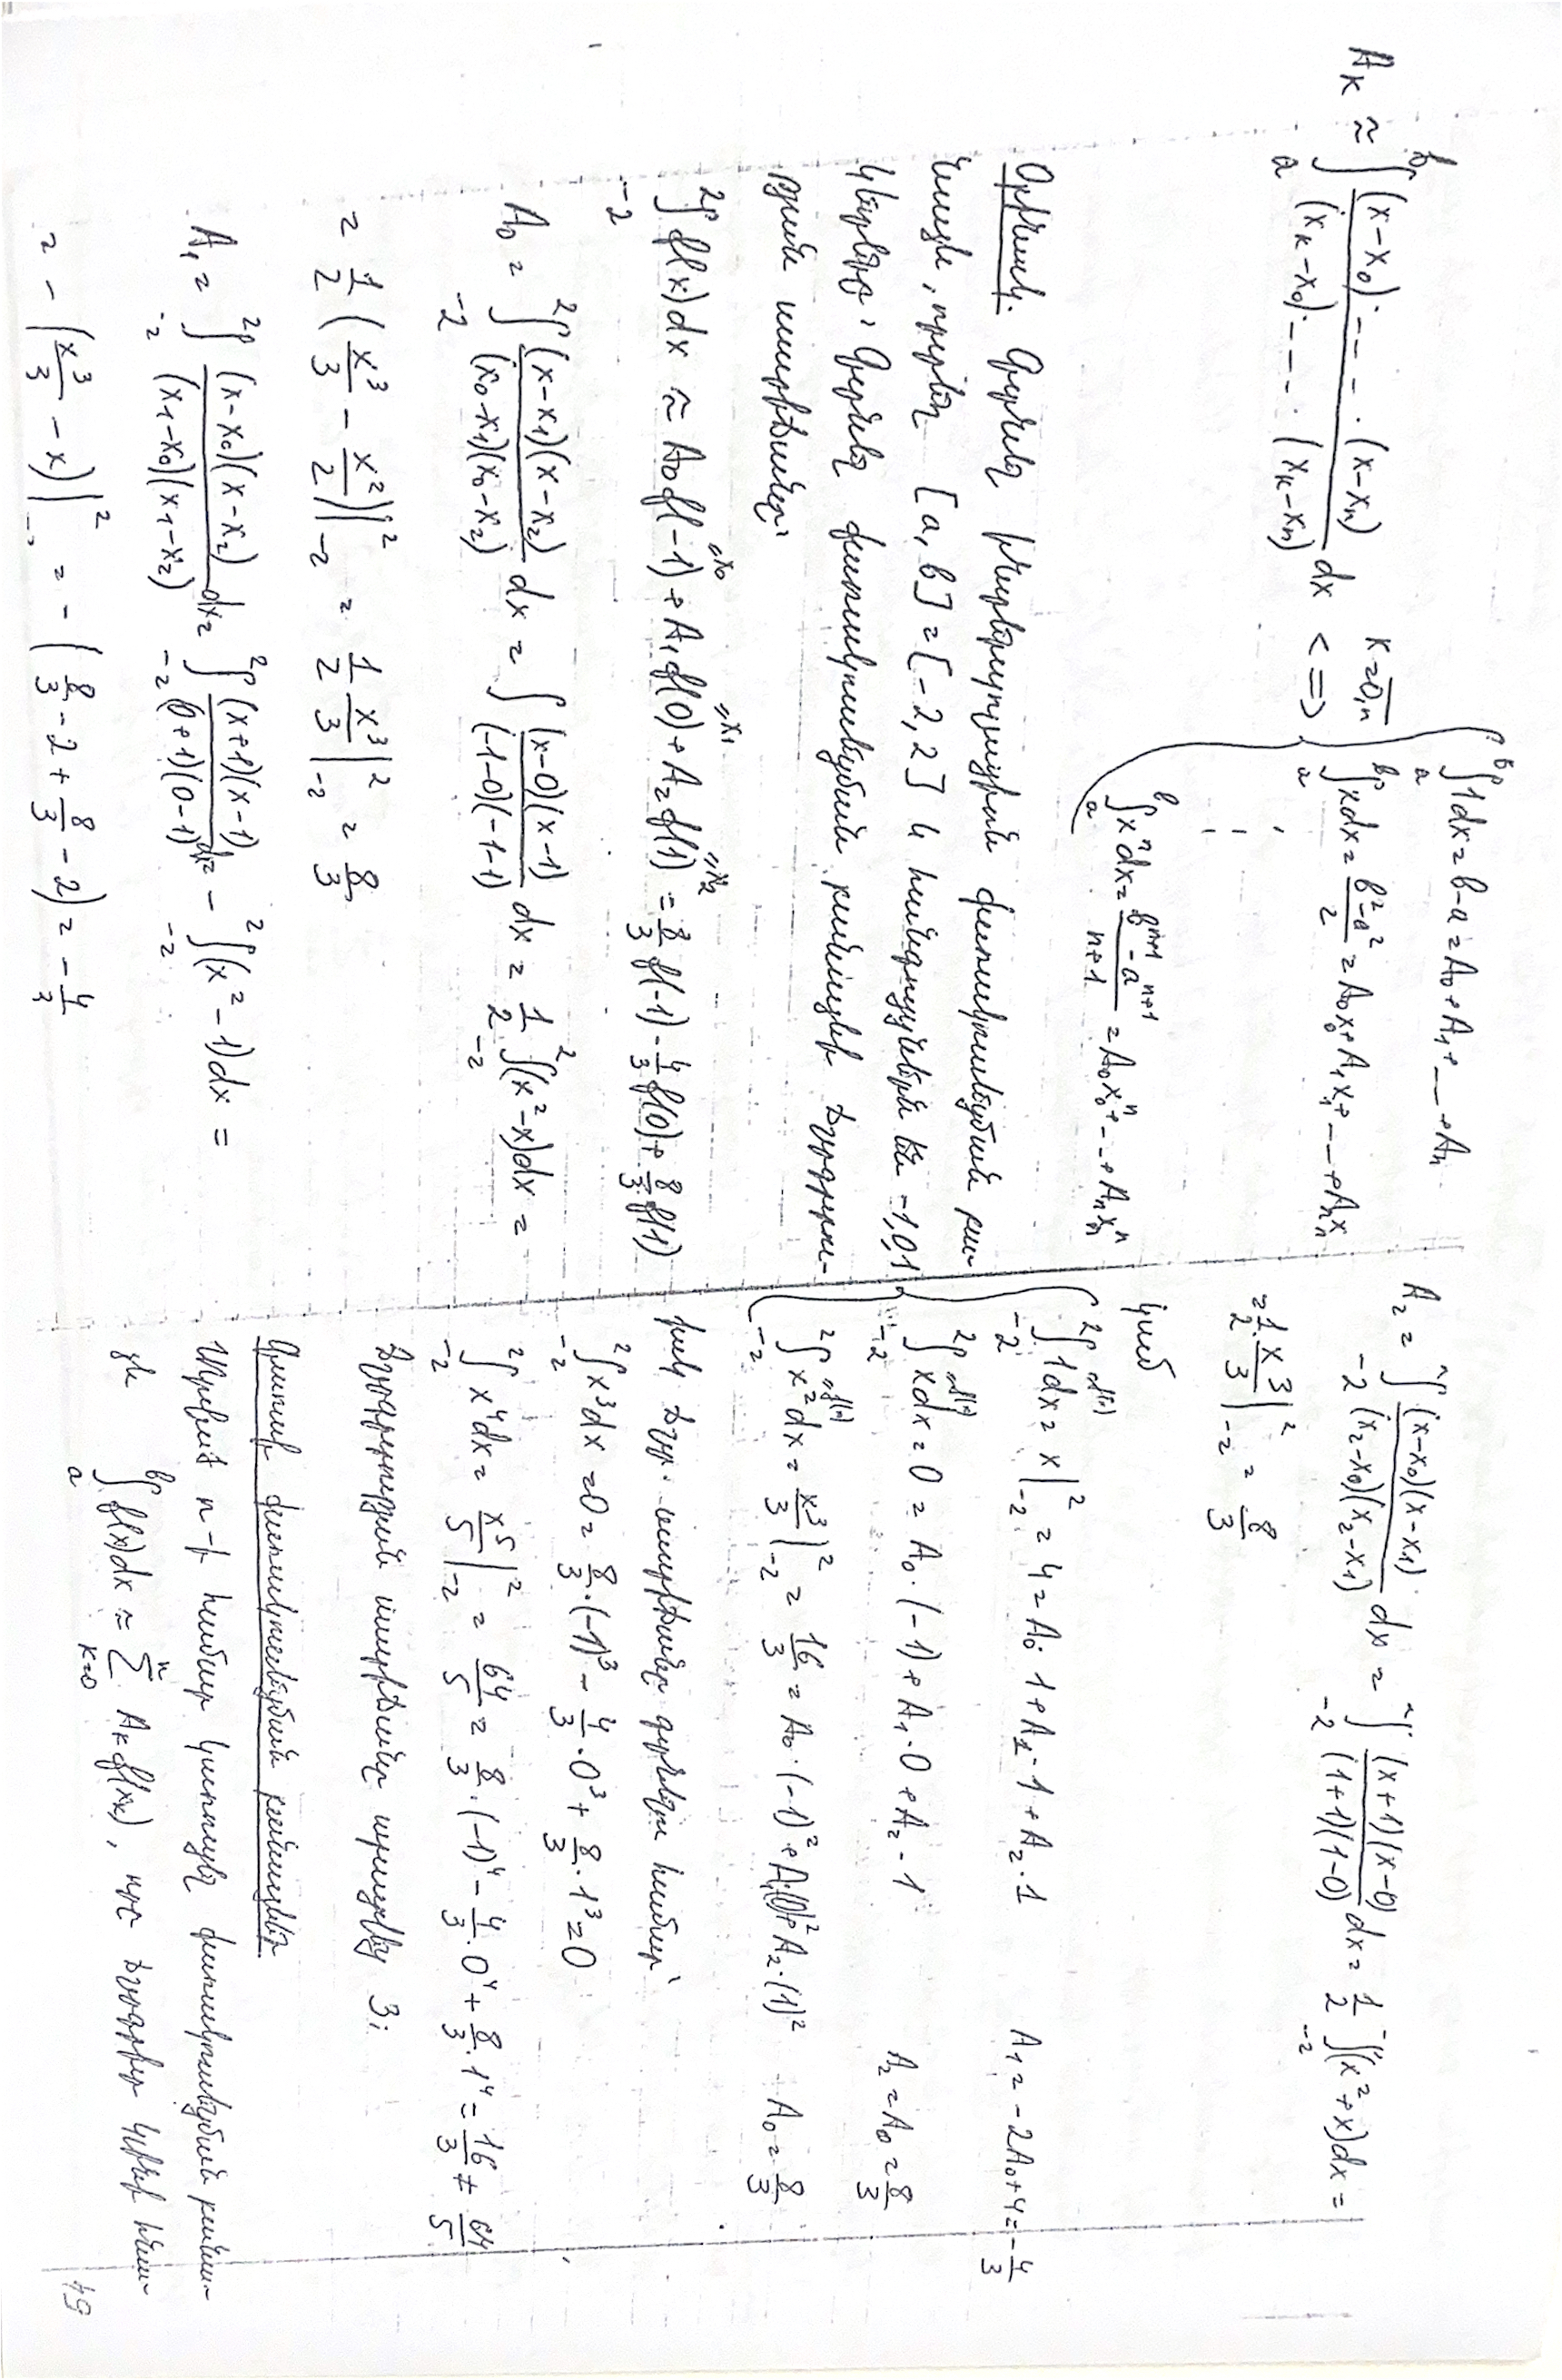 A_k ≈ ∫_a^b (x-x_0)·---·(x-x_n) / (x_k-x_0)·---·(x_k-x_n) dx <=> k=0,n
{ ∫_a^b 1dx = b-a = A_0+A_1+---+A_n
∫_a^b xdx = (b^2-a^2)/2 = A_0x_0+A_1x_1+---+A_nx_n
⋮
∫_a^b x^n dx = (b^{n+1}-a^{n+1})/(n+1) = A_0x_0^n+--+A_nx_n^n
Օրինակ. Գրենք ինտերպոլացիոն քառակուսացման բա-
նաձև, որտեղ [a,b]=[-2,2] և հանգույցներն են -1,0,1
կետերը: Գտնենք քառակուսացման բանաձևի ճշգրտու-
թյան աստիճանը:
∫_{-2}^2 f(x)dx ≈ A_0f(-1)+A_1f(0)+A_2f(1) = 8/3 f(-1) - 4/3 f(0) + 8/3 f(1)
"x_0 "x_1 "x_2
A_0 = ∫_{-2}^2 (x-x_1)(x-x_2)/(x_0-x_1)(x_0-x_2) dx = ∫ (x-0)(x-1)/(-1-0)(-1-1) dx = 1/2 ∫_{-2}^2 (x^2-x)dx =
= 1/2 (x^3/3 - x^2/2)|_{-2}^2 = 1/2 x^3/3 |_{-2}^2 = 8/3
A_1 = ∫_{-2}^2 (x-x_0)(x-x_2)/(x_1-x_0)(x_1-x_2) dx = ∫_{-2}^2 (x+1)(x-1)/(0+1)(0-1) dx = -∫_{-2}^2 (x^2-1)dx =
= -(x^3/3 - x)|_{-2}^2 = -(8/3 - 2 + 8/3 - 2) = -4/3
A_2 = ∫_{-2}^2 (x-x_0)(x-x_1)/(x_2-x_0)(x_2-x_1) dx = ∫_{-2}^2 (x+1)(x-0)/(1+1)(1-0) dx = 1/2 ∫_{-2}^2 (x^2+x)dx =
= 1/2 · x^3/3 |_{-2}^2 = 8/3
կամ
{ ∫_{-2}^2 1dx = x|_{-2}^2 = 4 = A_0·1+A_1·1+A_2·1 A_1=-2A_0+4=-4/3
∫_{-2}^2 xdx = 0 = A_0·(-1)+A_1·0+A_2·1 A_2=A_0=8/3
∫_{-2}^2 x^2dx = x^3/3|_{-2}^2 = 16/3 = A_0·(-1)^2+A_1(0)^2+A_2·(1)^2 A_0=8/3
իսկ ճշգր. աստիճանը գտնելու համար՝
∫_{-2}^2 x^3dx = 0 = 8/3·(-1)^3 - 4/3·0^3 + 8/3·1^3 = 0
∫_{-2}^2 x^4dx = x^5/5|_{-2}^2 = 64/5 = 8/3·(-1)^4 - 4/3·0^4 + 8/3·1^4 = 16/3 ≠ 64/5
Ճշգրտության աստիճանը 3:
Գաուսի քառակուսացման բանաձևեր
Տրված n-ի համար կառուցել քառակուսացման բանա-
ձև ∫_a^b f(x)dx ≈ Σ_{k=0}^n A_kf(x_k), որը ճշգրիտ կլինի հնա-
49